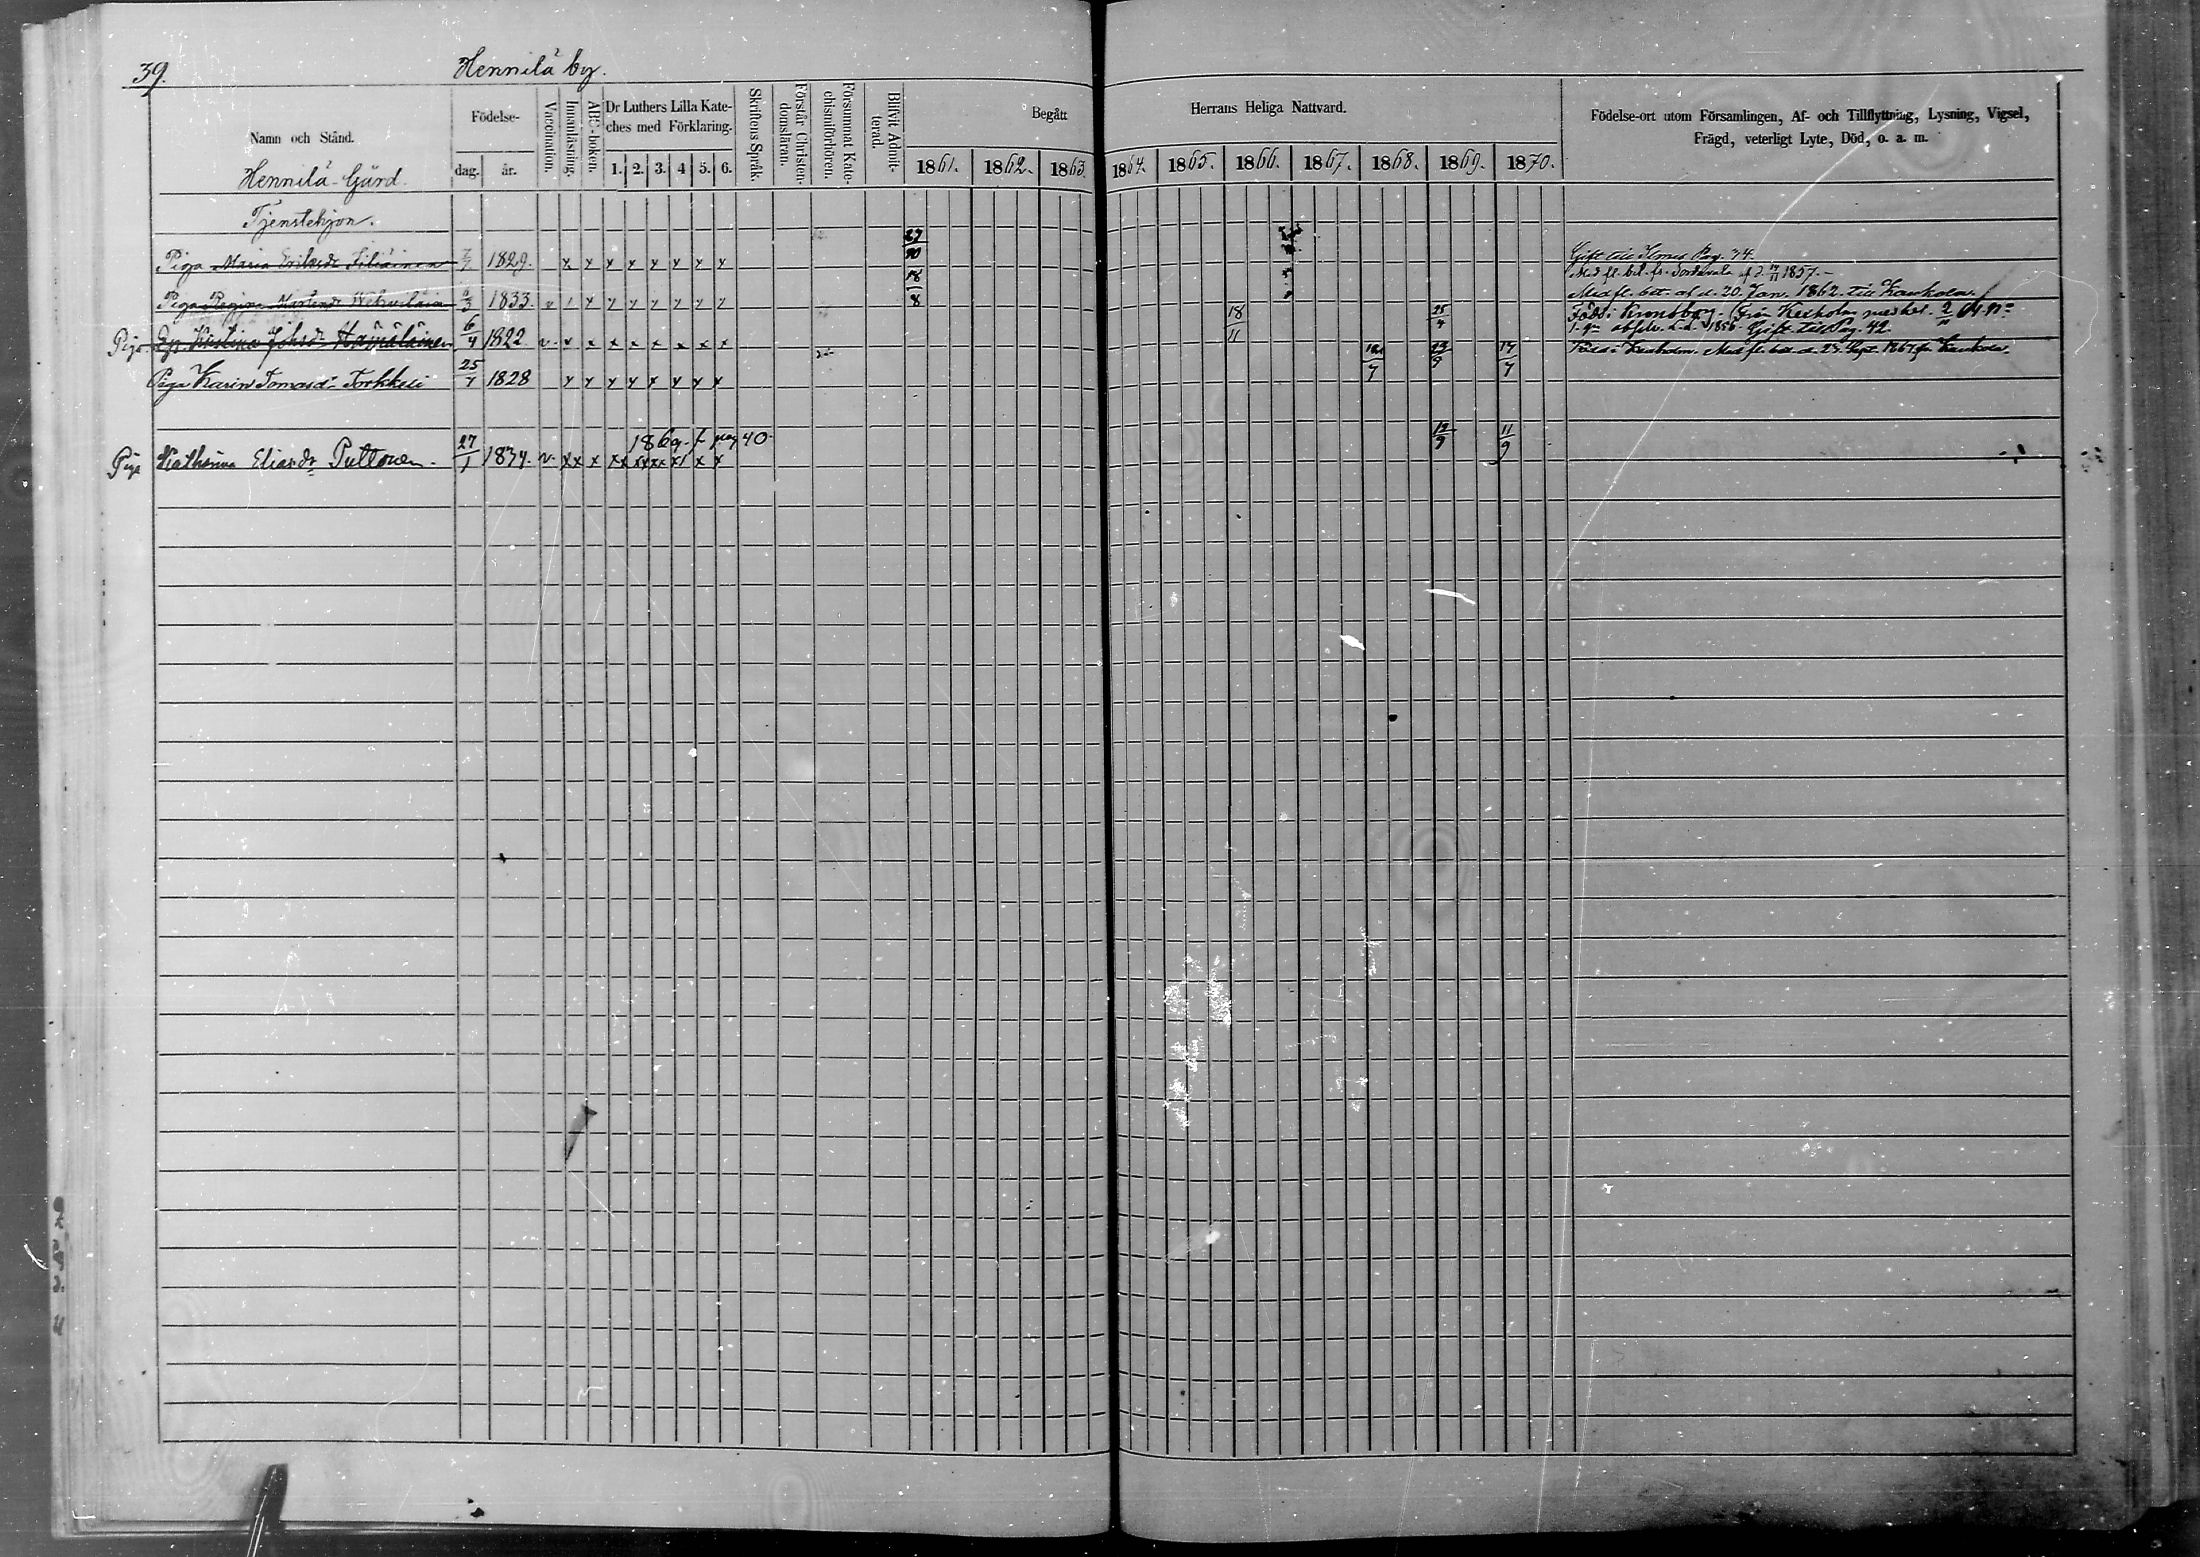 39.
Hennilä by.
Namn och Stånd.
Födelse-
dag. år.
Vaccination.
Innanläsning.
ABC-boken.
Dr Luthers Lilla Kate-
ches med Förklaring.
1. 2. 3. 4 5. 6.
Skriftens Språk.
Förstår Christen-
domsläran.
Försummat Kate-
chismiförhören.
Blifvit Admit-
terad.
Begått Herrans Heliga Nattvard.
1861. 1862. 1863. 1864. 1865. 1866. 1867. 1868. 1869. 1870.
Födelse-ort utom Församlingen, Af- och Tillflyttning, Lysning, Vigsel,
Frägd, veterligt Lyte, Död, o. a. m.
Hennilä Gård.
Tjenstehjon.
Piga Maria Eriksdr 1829. x x x x x x x x Gift till Pag. 34.
Med fl. bet. fr. Sordavala 1857.
Piga Regina 1833. 18/8 Med fl. bet. af d. 20 Jan. 1862 till Kaukola.
Piga Kristina Johsdr Hämäläinen 6/4 1822 v x x x x x x x x 18/11 25/4 Född i Kronoborg. Från Kexholm
1856. Gift till Pag. 42.
Piga Karin Tomasdr Torkkeli 25/4 1828 x x x x x x x x Med fl. bet. d. 23 Sept. 1867 fr. Kaukola.
1869 fr pag 40.
Piga Katharina Eliasdr Puttonen. 27/1 1834. v. xx x xx xxxx x/ x x 12/9 11/9